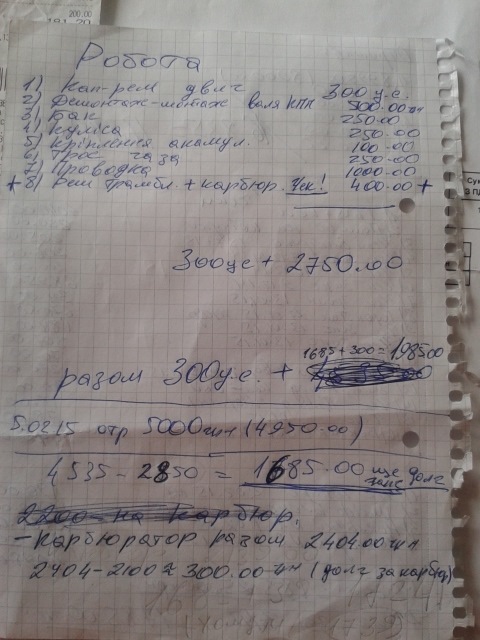 200.00
181.20
Робота
1) Кап-рем двиг 300 у.е.
2) Демонтаж-монтаж вала КПП 500.00 гн
3) Бак 250.00
4) Куліса 250.00
5) Кріплення акамул. 100.00
6) Трос газа 250.00
7) Проводка 1000.00
+ 8) Рем Трамбл. + карбюр. Чек! 400.00 +
300 уе + 2750.00
1685 + 300 = 1985.00
разом 300 у.е. +
5.02.15 отр 5000 грн (4950.00)
4535 - 2850 = 1685.00 ще долг
2200 на карбюр.
- карбюратор разом 2404.00 грн
2404 - 2100 ≈ 300.00 грн (долг за карбюр)